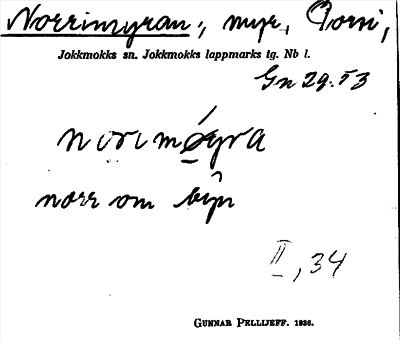 Norrimyran, myr, Porsi,
Jokkmokks sn. Jokkmokks lappmarks tg. Nb l.
Gn 29. 53
norr om byn
II, 34
GUNNAR PELLIJEFF. 1936.